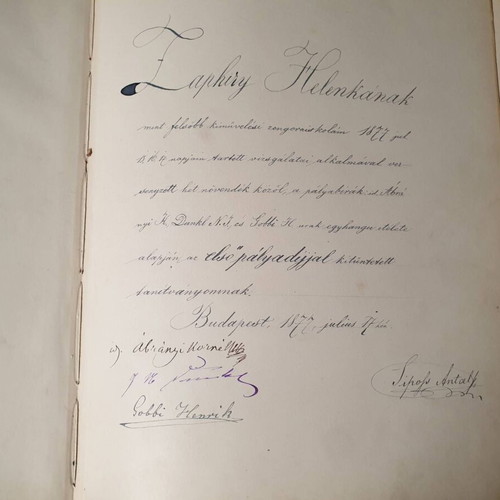 Zaphiry Helenkának
mint felsőbb kiművelése zongoraiskolám 1877 jul
napjain tartott vizsgálatai alkalmával ver-
senyzett hét növendék közől, a pályabírák: Ábrá-
nyi K, Dunkl N. J, és Gobbi H. urak egyhangu itélete
alapján az "első" pályadijjal kitüntetett
tanitványomnak.
Budapest, 1877, julius 17 én
Ábrányi Kornél
Siposs Antal
Gobbi Henrik